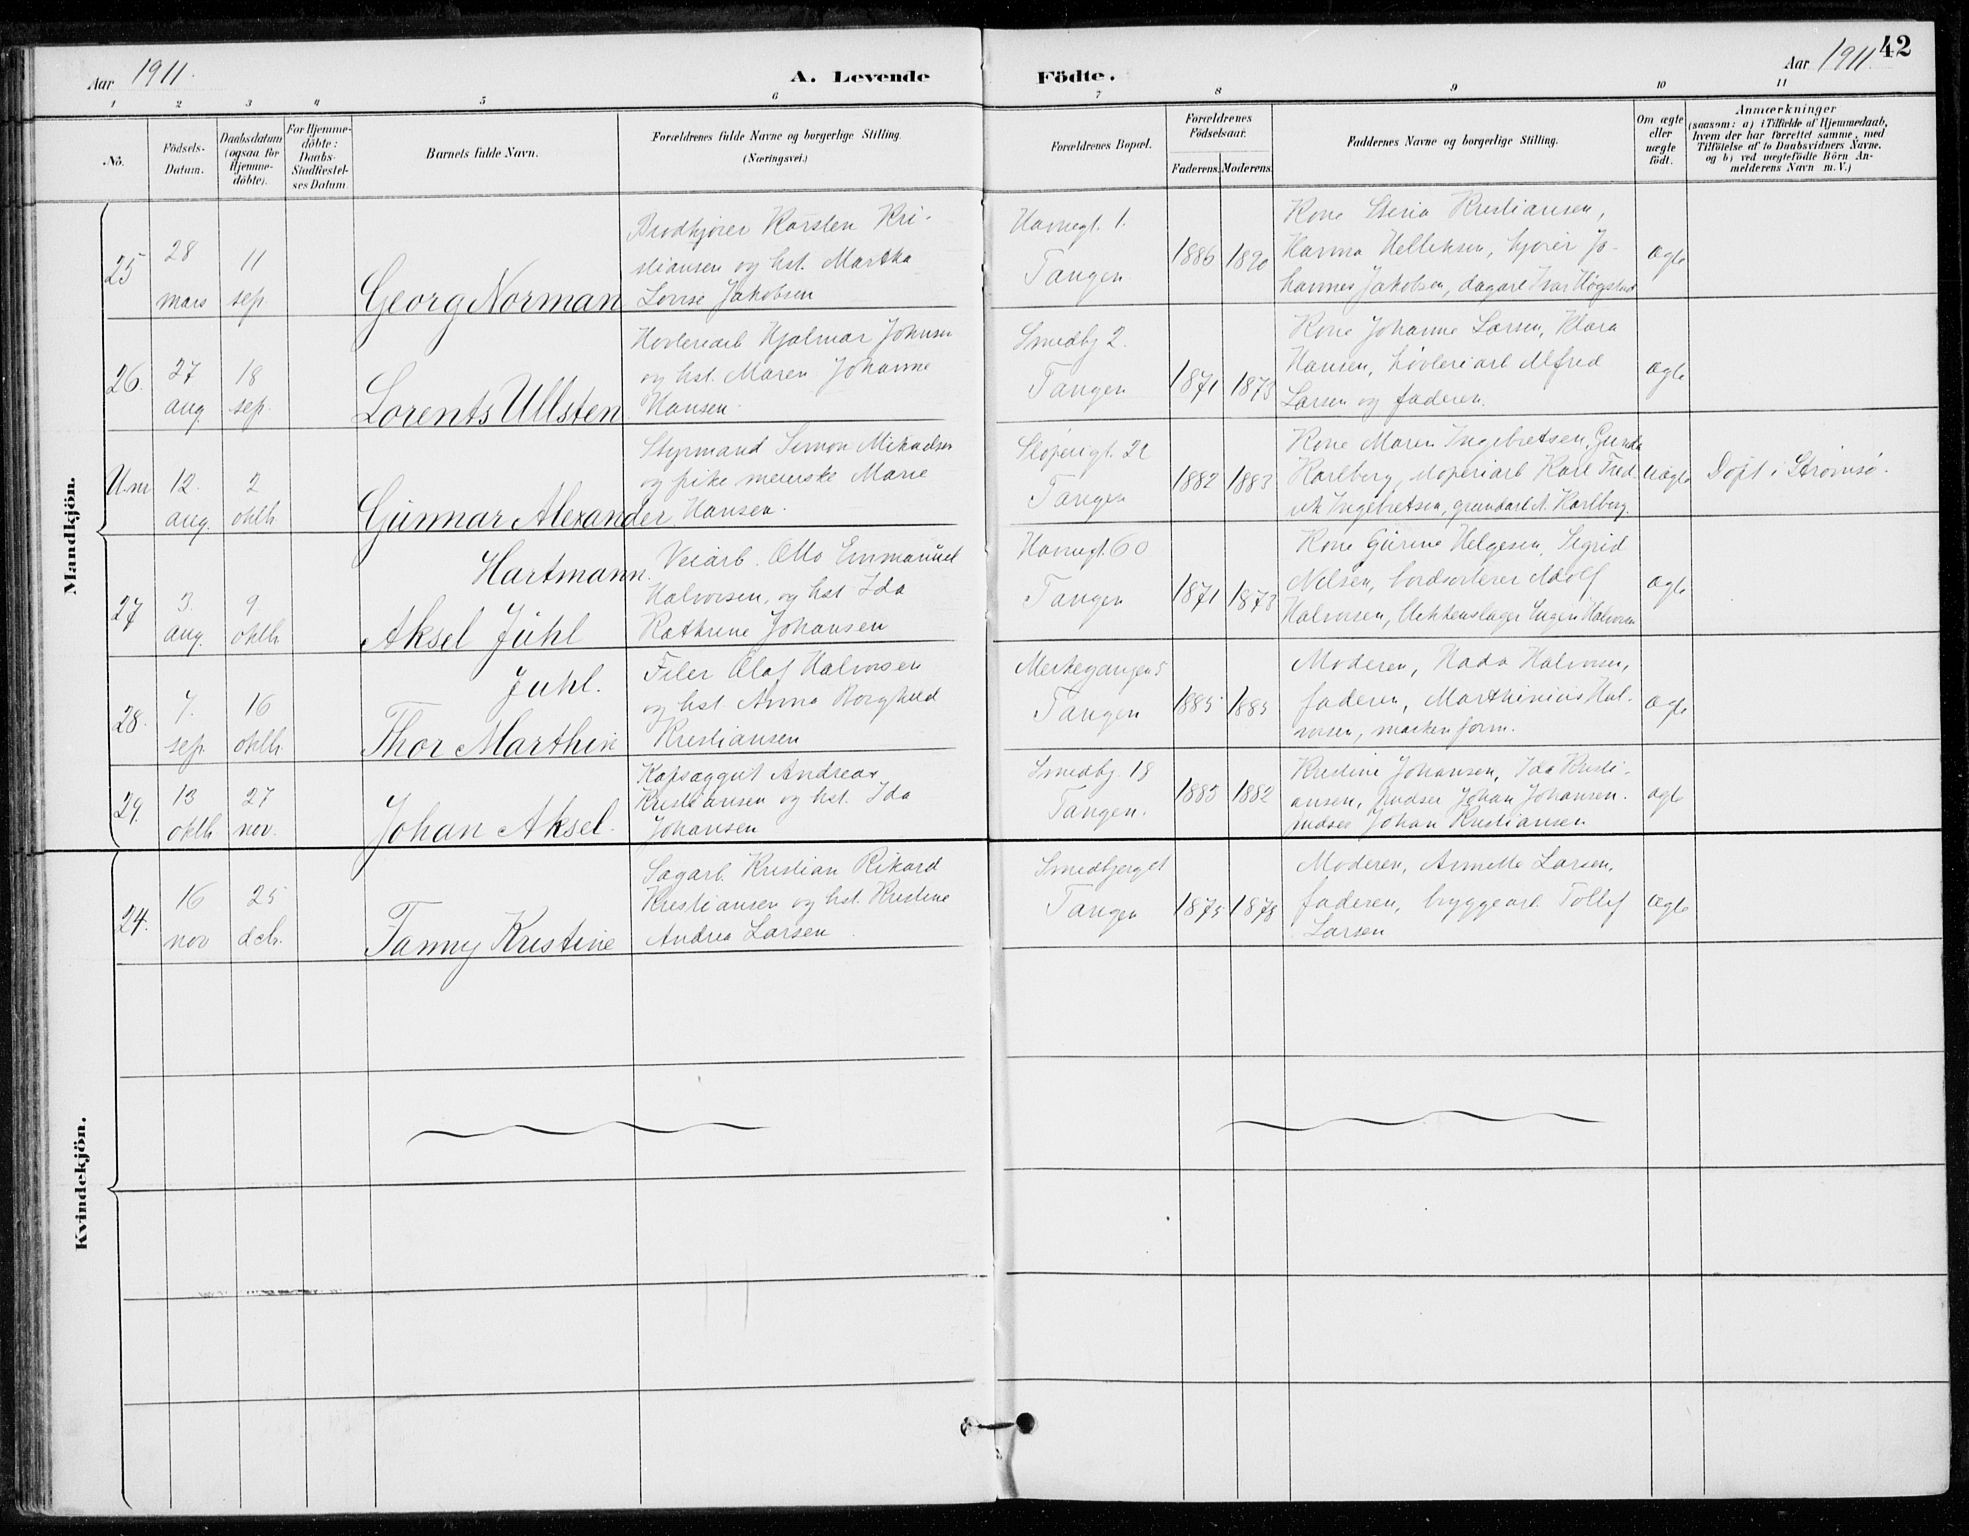 Aar 1911.
A. Levende Födte.
Aar 1911
42
1 2 3 4 5 6 7 8 9 10 11
No.
Födsels-
Datum.
Daabsdatum
(ogsaa for
Hjemme-
döbte).
For Hjemme-
döbte:
Daabs-
Stadfæstel-
ses Datum.
Barnets fulde Navn.
Forældrenes fulde Navne og borgerlige Stilling.
(Næringsvei.)
Forældrenes Bopæl.
Forældrenes
Födselsaar.
Faderens. Moderens.
Faddernes Navne og borgerlige Stilling.
Om ægte
eller
uægte
födt.
Anmærkninger
(saasom: a) i Tilfælde af Hjemmedaab,
hvem der har forrettet samme, med
Tilföielse af to Daabsvidners Navne.
og b) ved uægtefödte Börn An-
melderens Navn m. V.)
Mandkjön.
25
28
mars
11
sep.
Georg Norman
Brødkjører Karsten Kri-
stiansen og hst. Martha
Lovise Jakobsen
Havnegt. 1.
Tangen
1886 1890
Kone Kristiansen,
HannaIelleksen, kjører Jo-
hannes Jakobsen, dagarb Ivar Høgstad
ægte
26.
27
aug.
18
sep.
Lorents Ullsten
Høvleriarb Hjalmar Johnsen
og hst. Maren Johanne
Hansen.
Smedbj 2.
Tangen
1871 1873
Kone Johanne Larsen, Klara
Hansen, høvleriarb Alfred
Larsen og faderen.
ægte
U.nr
12.
aug.
2
oktb
Gunnar Alexander
Hartmann.
Styrmand Simon Mikaelsen
og pike Marie
Hansen.
Sloperigt. 22
Tangen
1882 1883
Kone Maren Ingebretsen, Gunda
Karlberg, sloperiarb Karl Fred-
rik Ingebretsen, grundarb A. Karlberg.
uægte
Døpt i Strømsø.
27
3.
aug.
9.
oktb
Aksel Juhl
Juhl.
Veiarb. Otto Emmanuel
Halvorsen, og hst Ida
Kathrine Johansen
Havnegt. 60
Tangen
1871 1873
Kone Gurine Helgesen, Sigrid
Nilsen, bordsorterer Adolf
Halvorsen, blikkenslager Eugen Halvorsen
ægte
28.
7.
sep
16
oktb.
Thor Marthin
Filer Olaf Halvorsen
og hst. Anna Borghild
Kristiansen
Merkegangen 5
Tangen
1885 1885
Moderen, Hada Halvorsen,
faderen, Marthinius Hal-
vorsen, maskenform.
ægte
29.
13
oktb
27
nov.
Johan Aksel.
Kapsaggut Andreas
Kristiansen og hst. Ida
Johansen
Smedbj. 18
Tangen.
1885 1882
Kristine Johansen, Ida Kristi-
ansen, pudser Johan Johansen.
pudser Johan Kristiansen
ægte
Kvindekjön.
24.
16
nov
25
dcb.
Fanny Kristine
Sagarb. Kristian Rikard
Kristiansen og hst. Kristine
Andrea Larsen
Smedbjerget
Tangen
1875 1878
Moderen, Annette Larsen,
faderen, bryggearb Tollef
Larsen
ægte